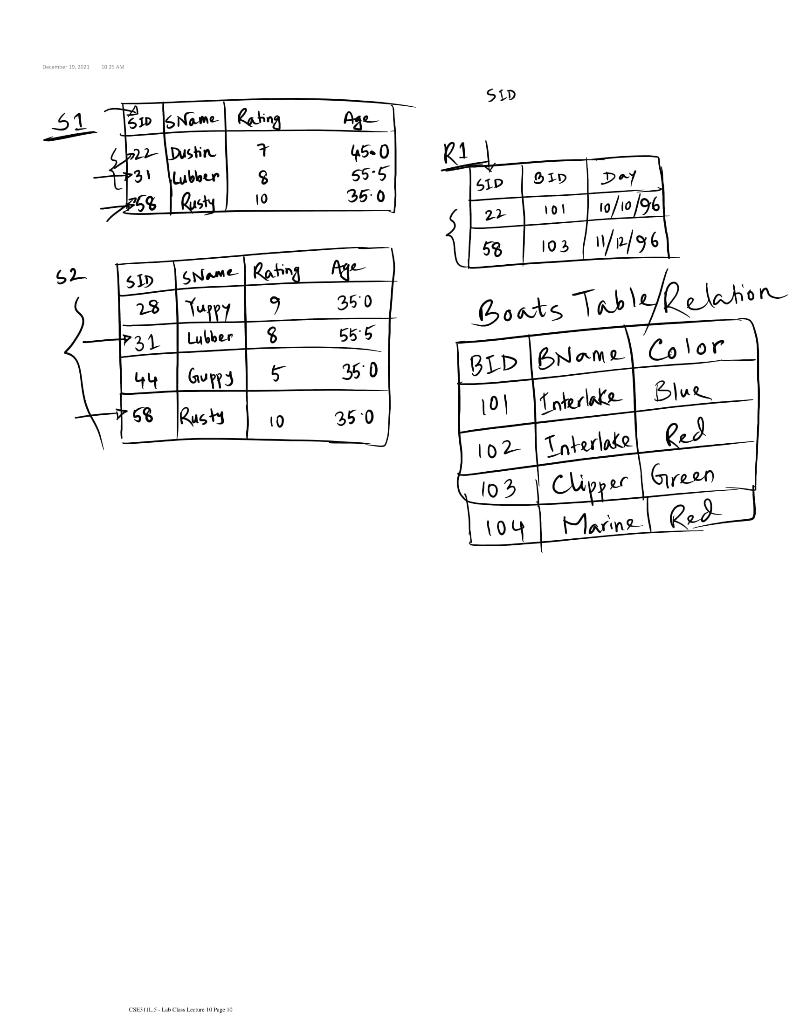 December 19, 2021 10:25 AM
SID
S1
SID SName Rating Age
22 Dustin 7 45.0
31 Lubber 8 55.5
58 Rusty 10 35.0
R1
SID BID Day
22 101 10/10/96
58 103 11/12/96
S2
SID SName Rating Age
28 Yuppy 9 35.0
31 Lubber 8 55.5
44 Guppy 5 35.0
58 Rusty 10 35.0
Boats Table/Relation
BID BName Color
101 Interlake Blue
102 Interlake Red
103 Clipper Green
104 Marine Red
CSE311L.5 - Lab Class Lecture 10 Page 10